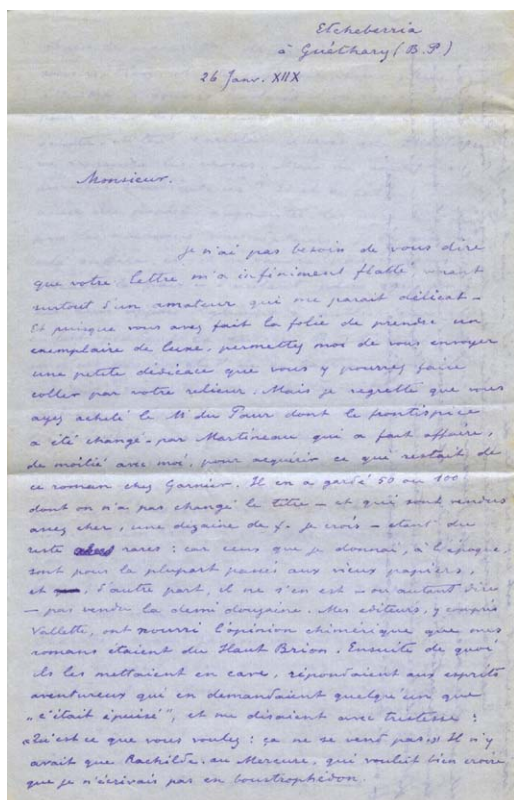 Etcheberria
à Guéthary (B.P)
26 Janv. XIIX
Monsieur.
Je n'ai pas besoin de vous dire
que votre lettre m'a infiniment flatté venant
surtout d'un amateur qui me parait délicat –
Et puisque vous avez fait la folie de prendre un
exemplaire de luxe, permettez moi de vous envoyer
une petite dédicace que vous y pourrez faire
coller par votre relieur. Mais je regrette que vous
ayez acheté le M du Paur dont le frontispice
a été changé – par Martineau qui a fait affaire,
de moitié avec moi, pour acquérir ce qui restait de
ce roman chez Garnier. Il en a gardé 50 ou 100
dont on n'a pas changé le titre – et qui sont vendus
assez cher, une dizaine de f. je crois – étant du
reste rares : car ceux que je donnai, à l'époque,
sont pour la plupart passés aux vieux papiers,
et, d'autre part, il ne s'en est – ou autant dire
– pas vendu la demi douzaine. Mes editeurs, y compris
Vallette, ont nourri l'opinion chimérique que mes
romans étaient du Haut Brion. Ensuite de quoi
ils les mettaient en cave, répondaient aux esprits
aventureux qui en demandaient quelqu'un que
"c'était épuisé", et me disaient avec tristesse :
«Qu'est ce que vous voulez : ça ne se vend pas» Il n'y
avait que Rachilde, au Mercure, qui voulût bien croire
que je n'écrivais pas en boustrophédon.